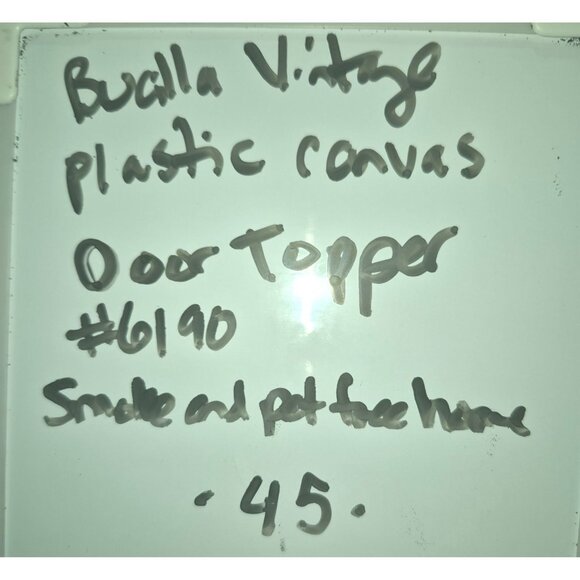 Bucilla Vintage
plastic canvas
Door Topper
#6190
Smoke and pet free home
· 45 ·